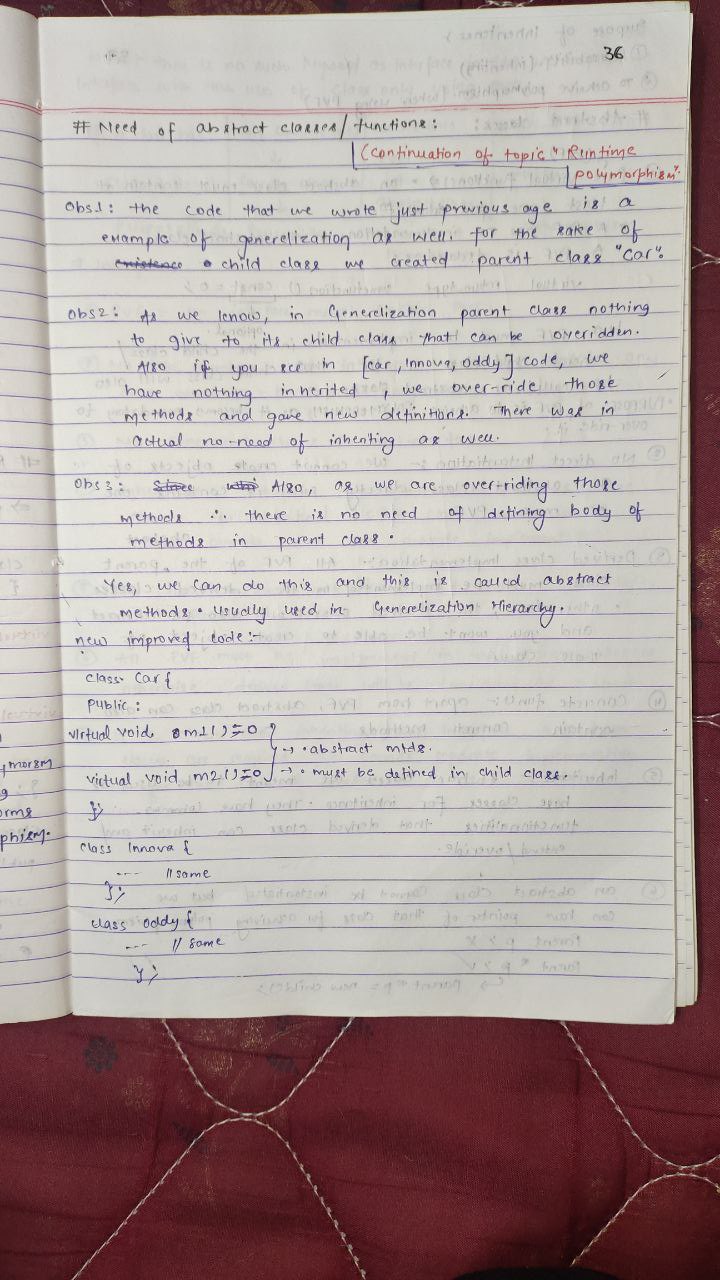 36
# Need of abstract classes/functions:
(continuation of topic "Runtime
polymorphism".
Obs1: the code that we wrote just previous age is a
example of generelization as well. for the sake of
existence child class we created parent class "Car".
Obs2: As we know, in Generelization parent class nothing
to give to its child class that can be overidden.
Also if you see in [car, Innova, oddy] code, we
have nothing inherited, we over-ride those
methods and gave new definitions. There was in
actual no-need of inheriting as well.
Obs3: Also, as we are over-riding those
methods ∴ there is no need of defining body of
methods in parent class.
Yes, we can do this and this is called abstract
methods. Usually used in Generelization Hierarchy.
new improved code:-
class Car {
public:
virtual void m1()=0
→ • abstract mtds.
virtual void m2()=0
→ • must be defined in child class.
};
class Innova {
--- // some
};
class oddy {
--- // some
};
ymorsm
g
orms
phism.